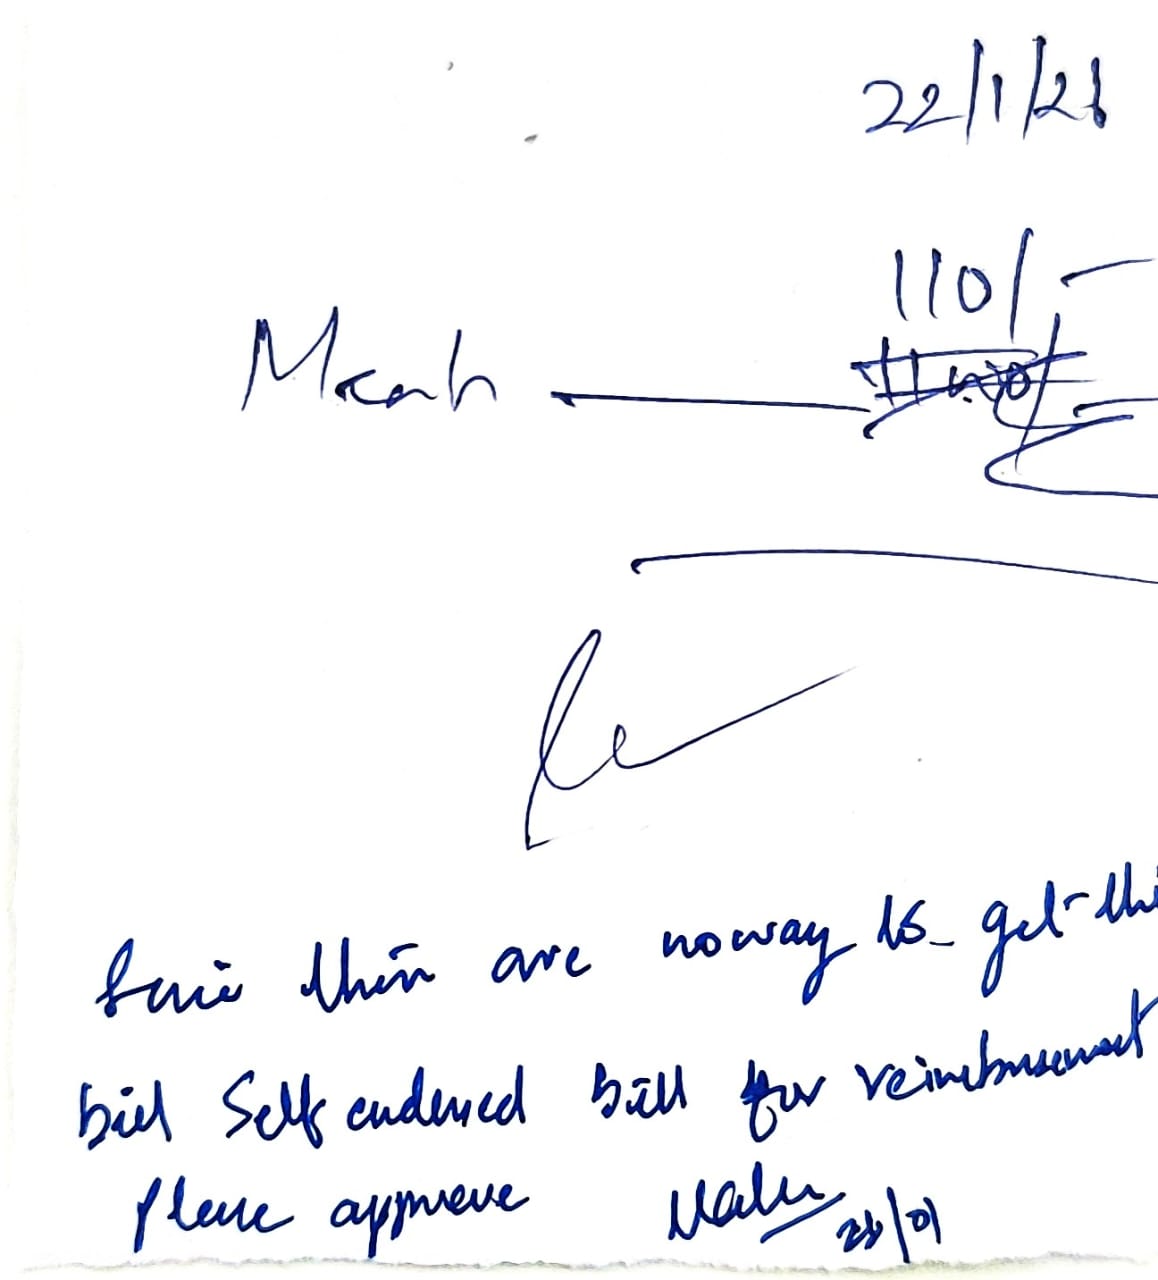 22/1/21
110/-
Mcah
Since their are noway to get thi
bill Self endersed bill for reimbursement
Please approve 28/01